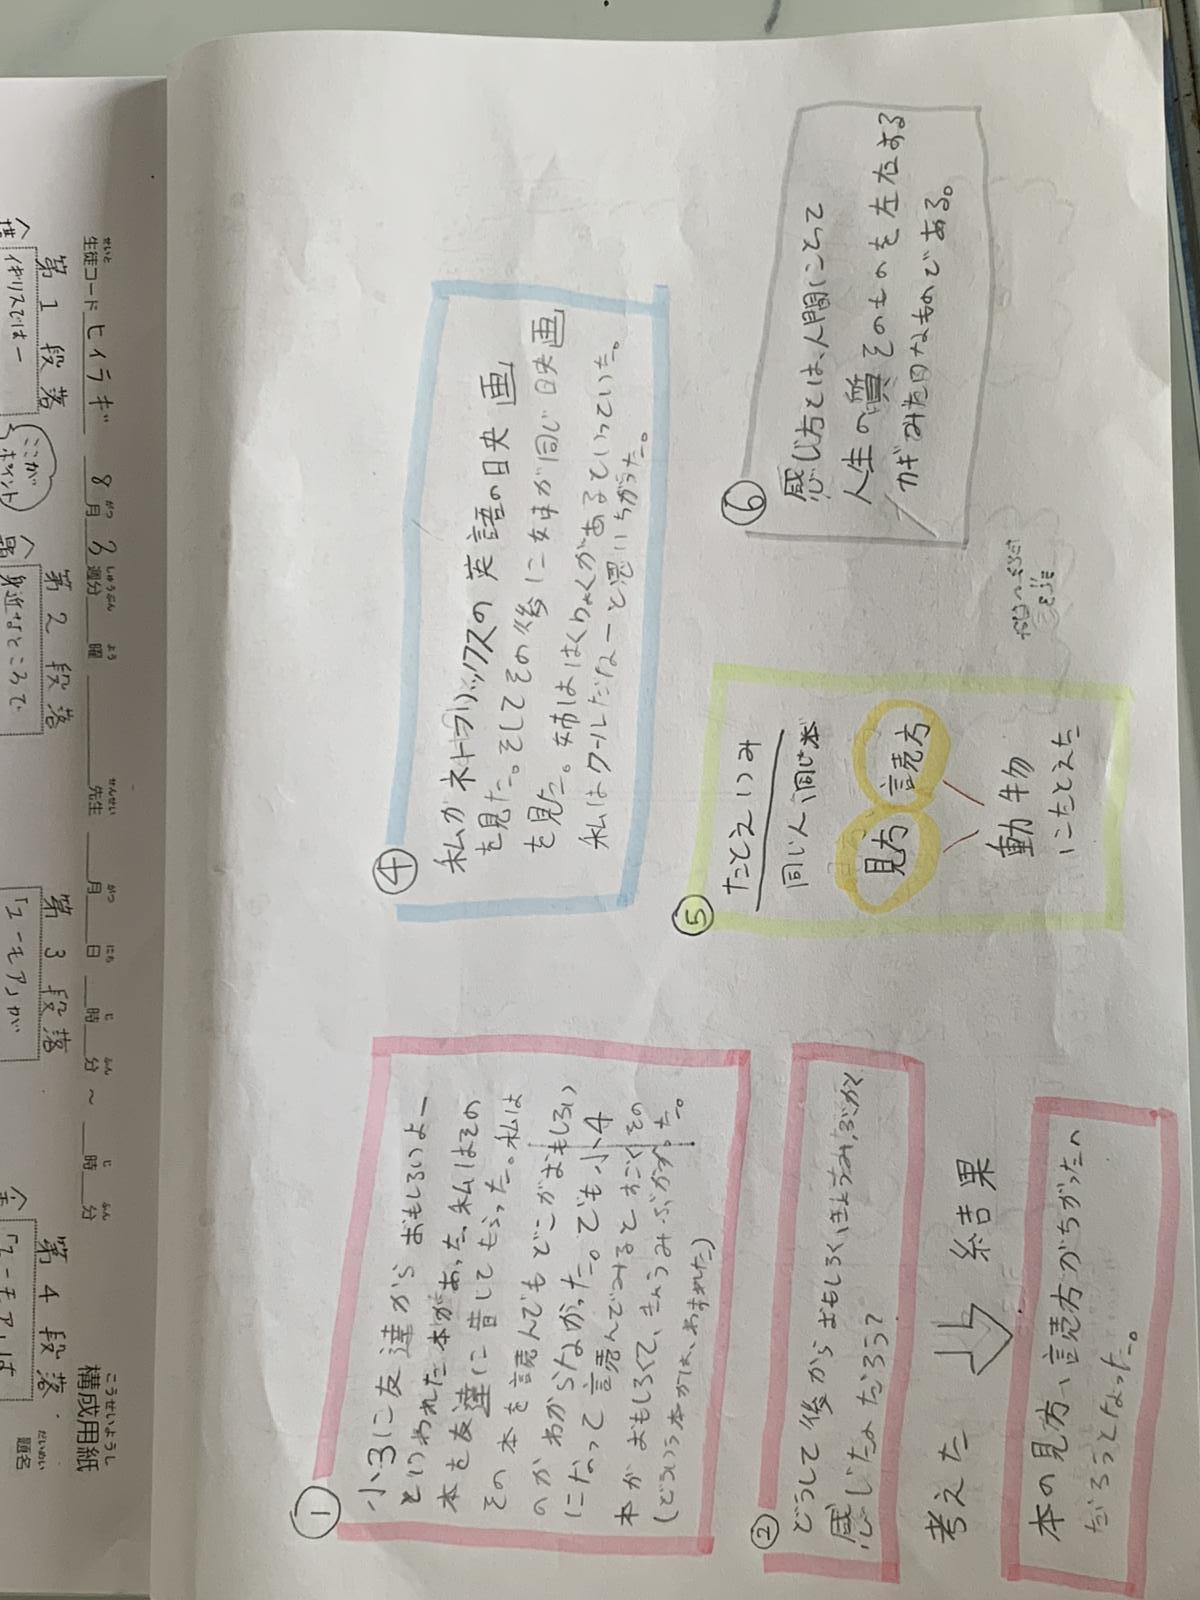 ①
小3に友達から おもしろいよー
といわれた本があった、私はその
本を友達に昔してもらった。私は
その本を読んでもどこがおもしろい
のかわからなかった。でも小4
になって読んでみるとすごくその
本がおもしろくて、きょうみぶかかった。
(どういう本かは、わすれた)
②
どうして後からおもしろく、きょうみぶかく
感じたんだろう?
考えた
結果
本の見方、読方がちがったん
だろうとなった。
④
私がネトフリックスの英語の映画
を見た。そしてその後に姉が同じ映画
を見た。姉ははくりょくがあるといっていた。
私はクールだなーと思いちがった。
⑤
たとえ いみ
同じ人、同じ本
見方 読方
動物
にたとえた
⑥
感じ方とは、人間にとって
人生の質そのものを左右する
カギみたいなものである。
生徒コード ヒイラギ 8月3週分 曜 先生 月 日 時 分 ~ 時 分
せいと がつ しゅうぶん よう せんせい がつ にち じ ふん じ ふん
こうせいようし
構成用紙
だいめい
題名
第1段落
イギリスでは一
ここが
ポイント
第2段落
身近なところで
第3段落
「ユーモア」が
第4段落
「ユーモア」は